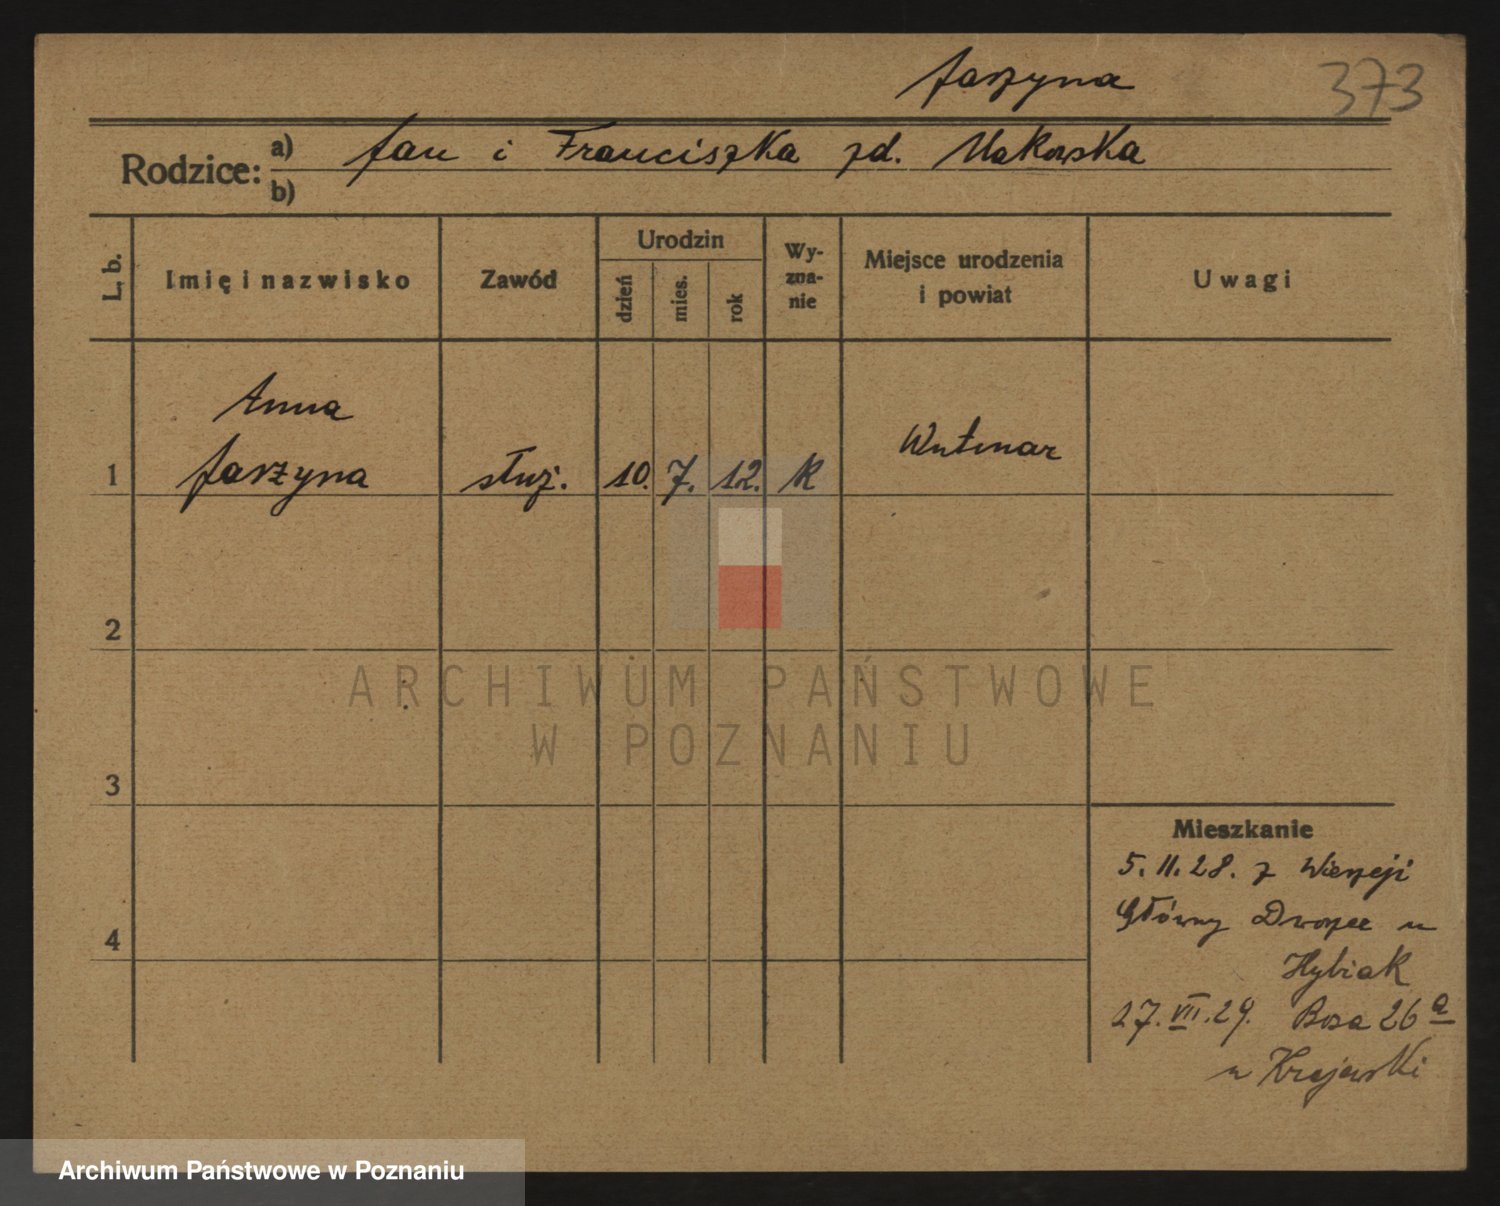 Jarzyna
373
Rodzice: a) Jan i Franciszka zd. Makowska
b)
L. b.
Imię i nazwisko
Zawód
Urodzin
dzień
mies.
rok
Wy-
zna-
nie
Miejsce urodzenia
i powiat
Uwagi
Anna
1 Jarzyna służ. 10. 7. 12. K
2
3
4
Mieszkanie
5. 11. 28. z
Główny Dworzec u
Hybiak
27. VII. 29. 26 a
u Krajewski
ARCHIWUM PAŃSTWOWE
W POZNANIU
Archiwum Państwowe w Poznaniu